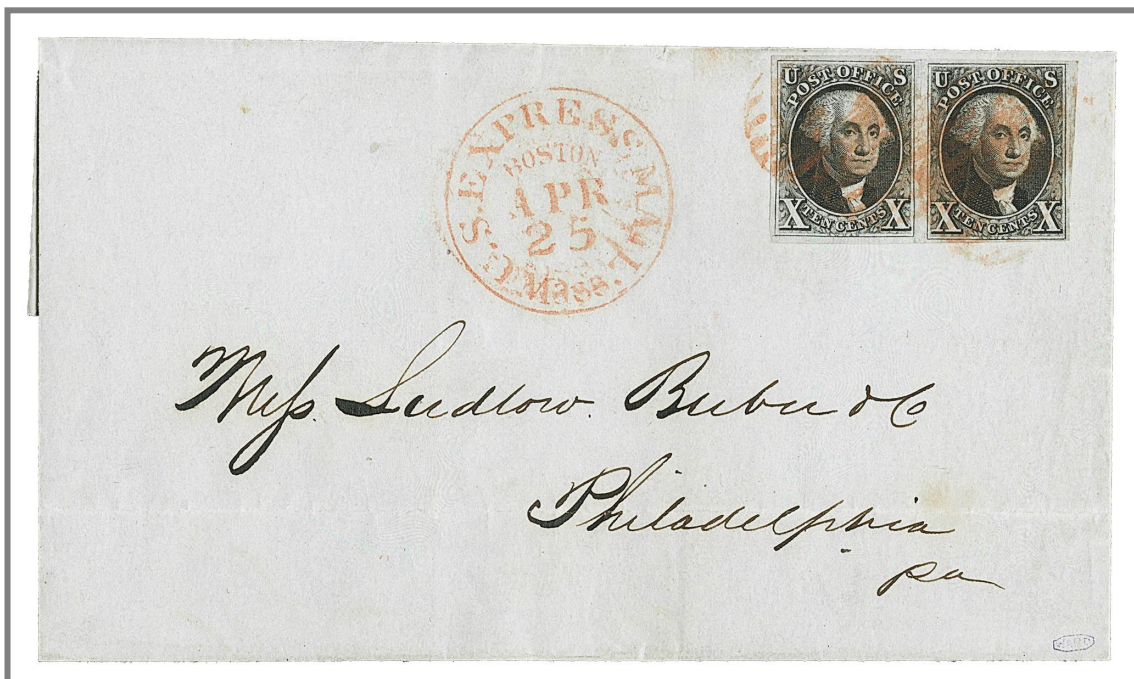 U.S. EXPRESS MAIL
BOSTON
APR
25
Mass.
U S
POST OFFICE
X TEN CENTS X
U S
POST OFFICE
X TEN CENTS X
Mess. Ludlow
& Co
Philadelphia
Pa